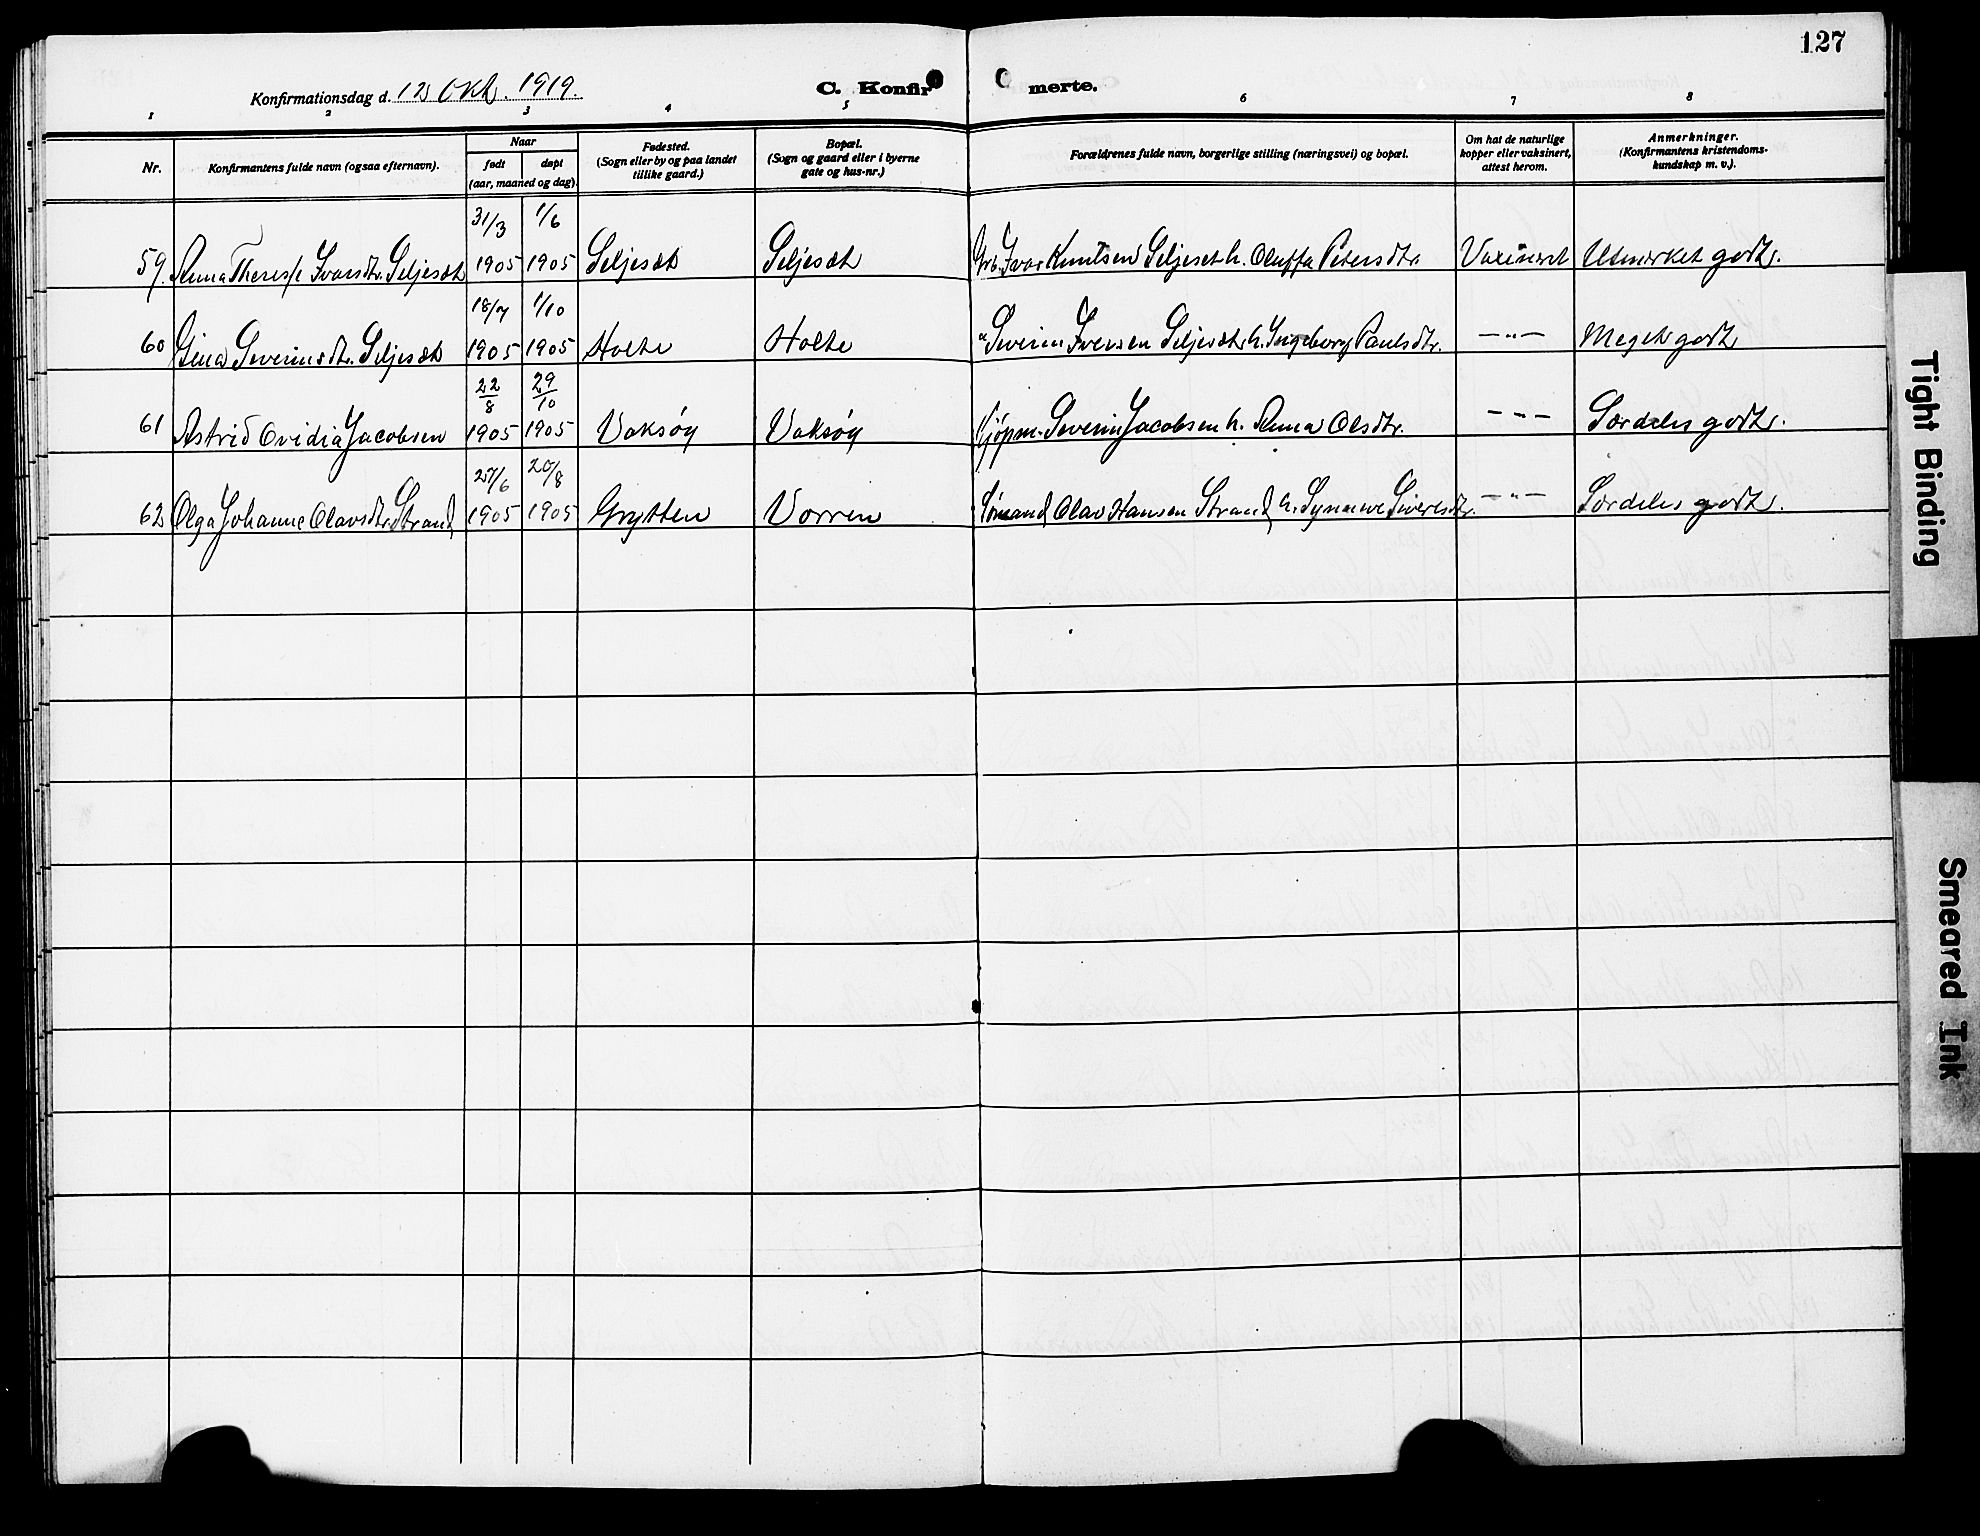 127
Konfirmationsdag d. 12 Okt. 1919.
C. Konfir merte.
1 2 3 4 5 6 7 8
Nr.
Konfirmantens fulde navn (ogsaa efternavn).
Naar
født døpt
(aar, maaned og dag)
Fødested.
(Sogn eller by og paa landet
tillike gaard.)
Bopæl.
(Sogn og gaard eller i byerne
gate og hus-nr.)
Forældrenes fulde navn, borgerlige stilling (næringsvei) og bopæl.
Om hat de naturlige
kopper eller vaksinert,
attest herom.
Anmerkninger.
(Konfirmantens kristendoms-
kundskap m. v.).
31/3 1/6
59. Anna Therese Ivarsdtr. Seljeset 1905 1905 Seljeset Seljeset Grb. Ivar Knutsen Seljeset h. Oluffa Petersdtr Vaxineret Utmerket godt.
18/7 1/10
60 Gina Severinsdtr. Seljeset 1905 1905 Holte Holte " Severin Iversen Seljeset h. Ingeborg Paulsdtr. — " — Meget godt
22/8 29/10
61 Astrid Ovidia Jacobsen 1905 1905 Vaksøy Vaksøy Kjøpm. Severin Jacobsen h. Anna Olsdtr. — " — Særdeles godt.
27/6 20/8
62 Olga Johanne Olavsdtr. Strand 1905 1905 Grytten Vorren Sømand Olav Hansen Strand h. Synnøve Siversdtr. — " — Særdeles godt.
Tight Binding
Smeared Ink